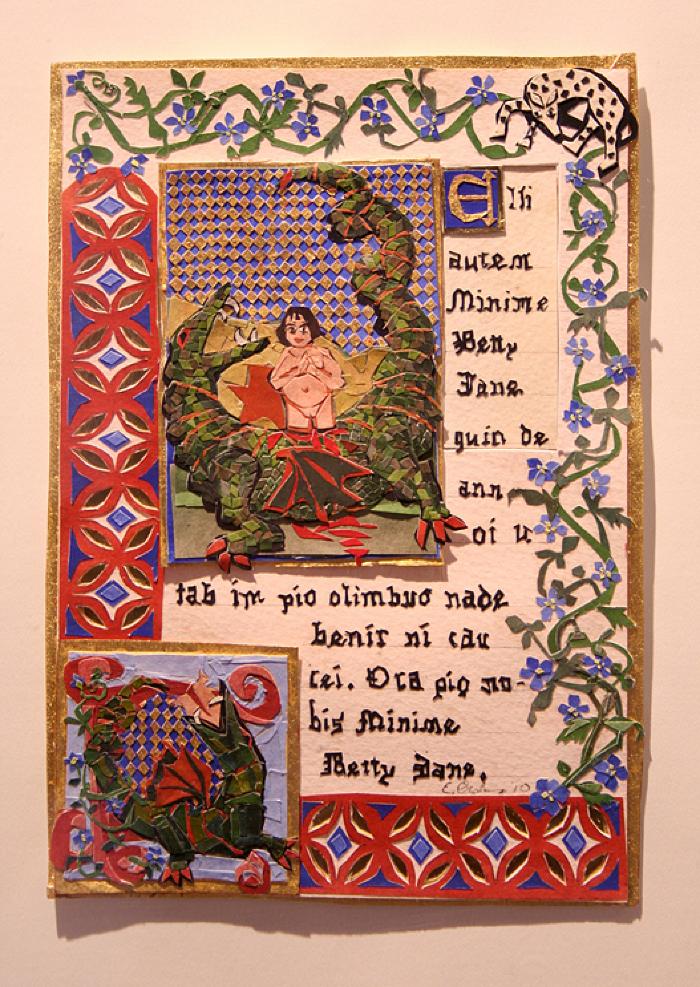 Elli
autem
Minime
Betty
Jane
quin de
ann
oi u
tab im pio olimbus nade
benir ni cau
cei. Ora pio no-
bis Minime
Betty Jane.
'10